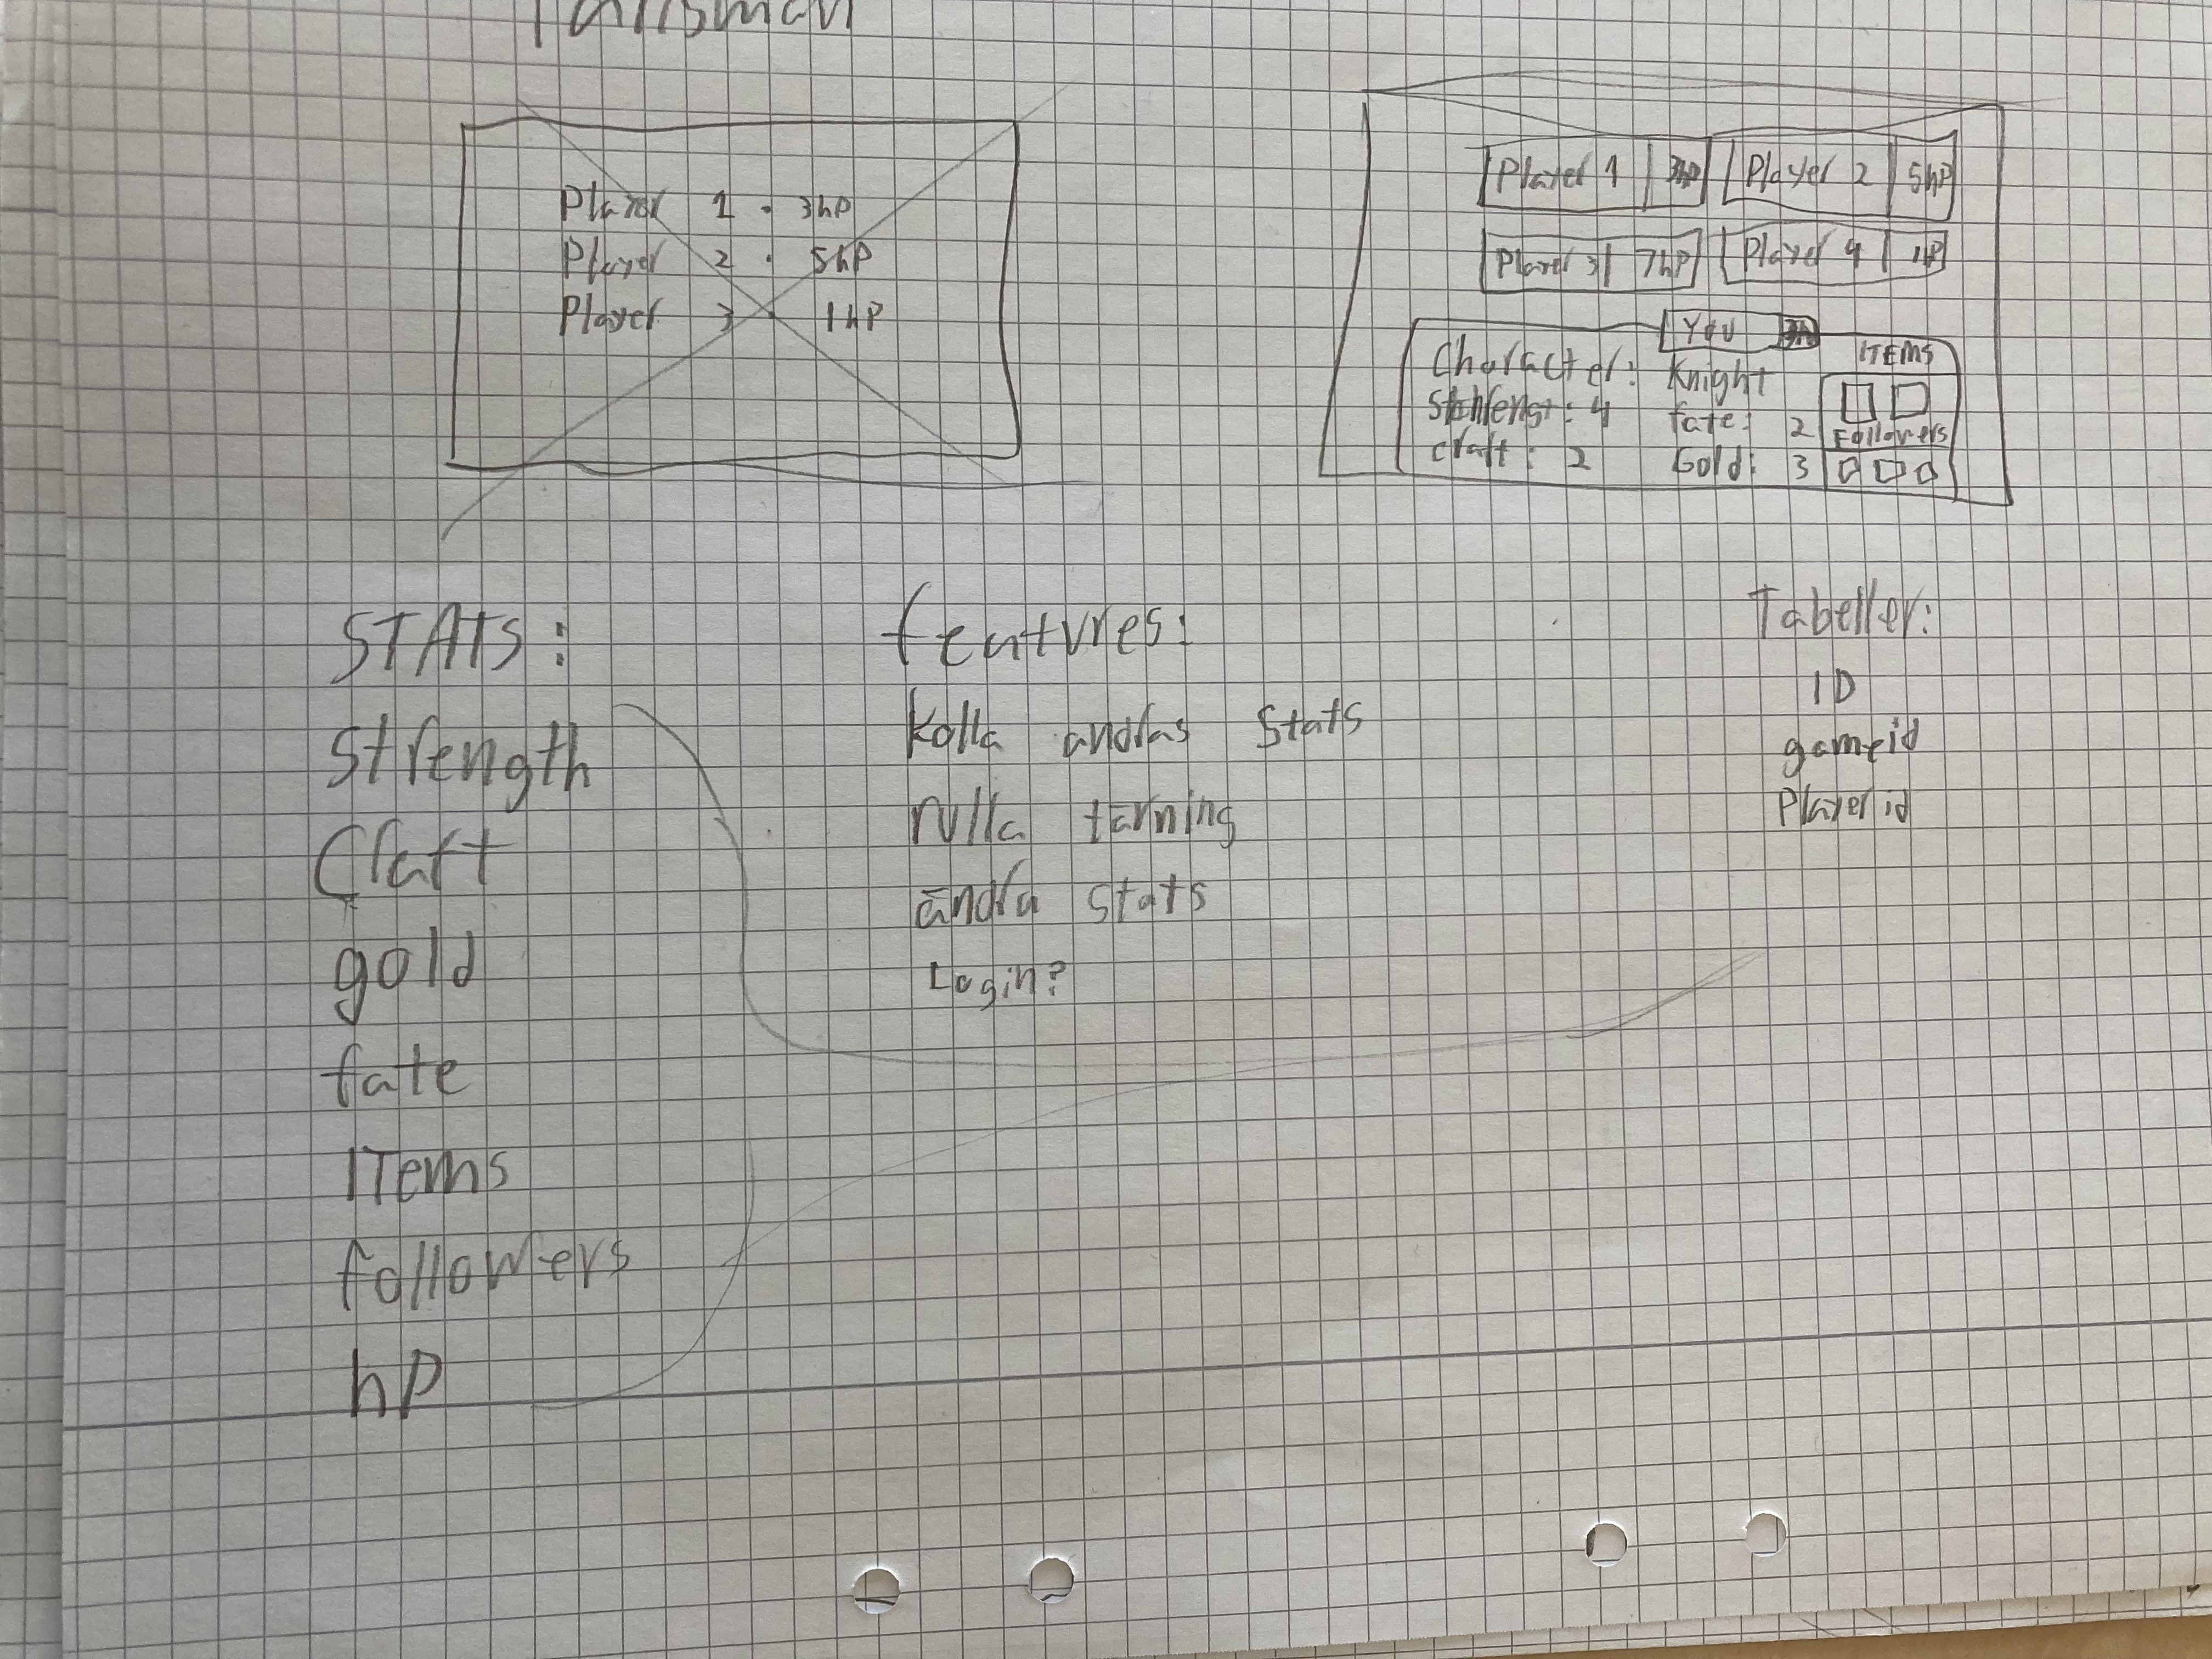 Tallisman
Player 1 · 3hP
Player 2 · 5hP
Player 3 · 1hP
Player 1 3hP Player 2 5hP
Player 3 7hP Player 4 1hP
You
Character: Knight
fate: 2
craft: 2 Gold: 3
ITEMS
Followers
STATS:
Strength
Craft
gold
fate
ITems
followers
hP
features:
Kolla andras Stats
rulla tärning
ändra stats
Login?
Tabeller:
ID
gameid
Player id